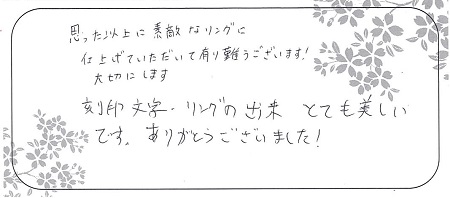 思った以上に素敵なリングに
仕上げていただいて有り難うございます!
大切にします
刻印文字・リングの出来 とても美しい
です。ありがとうございました!